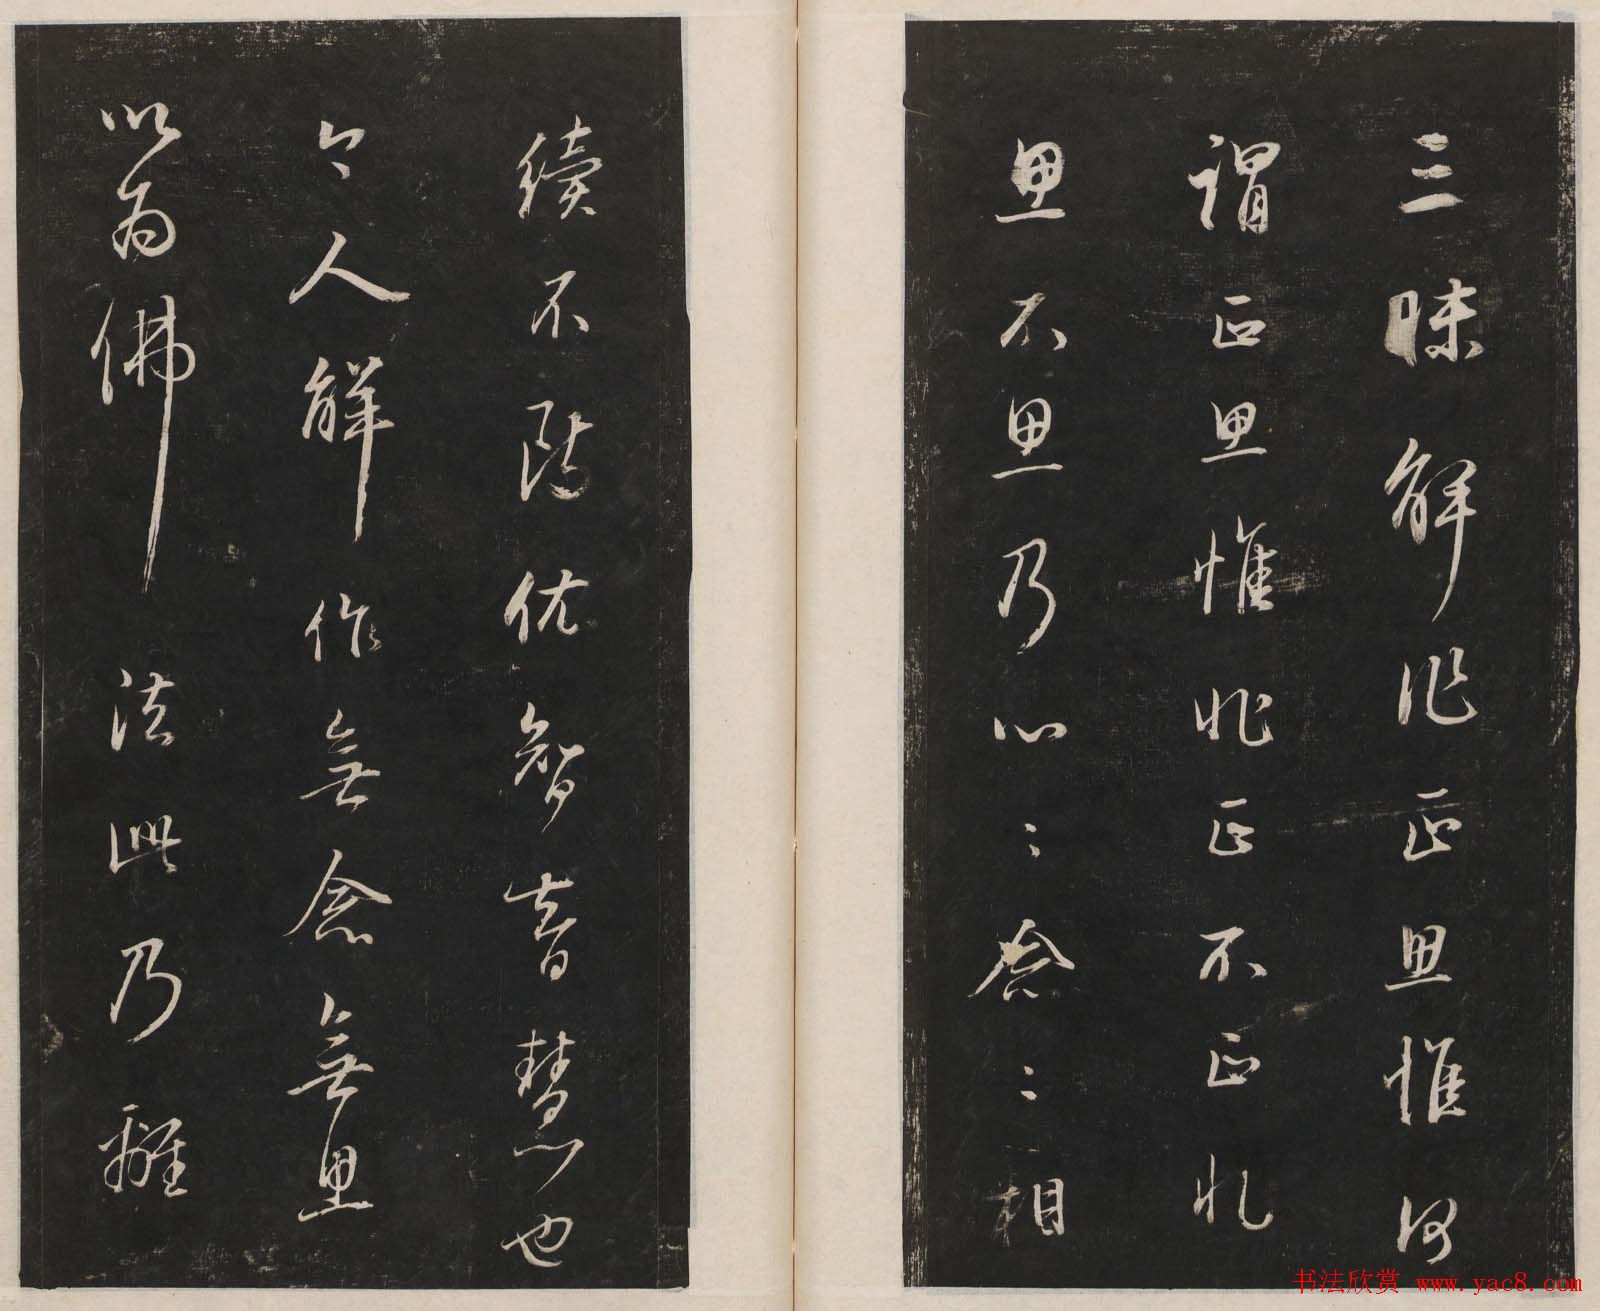 三昧解作正思惟何
謂正思惟非正不正非
思不思乃心〻念〻相
續不智慧也
今人解作無念無思
以為佛法此乃離
书法欣赏 www.yac8.com